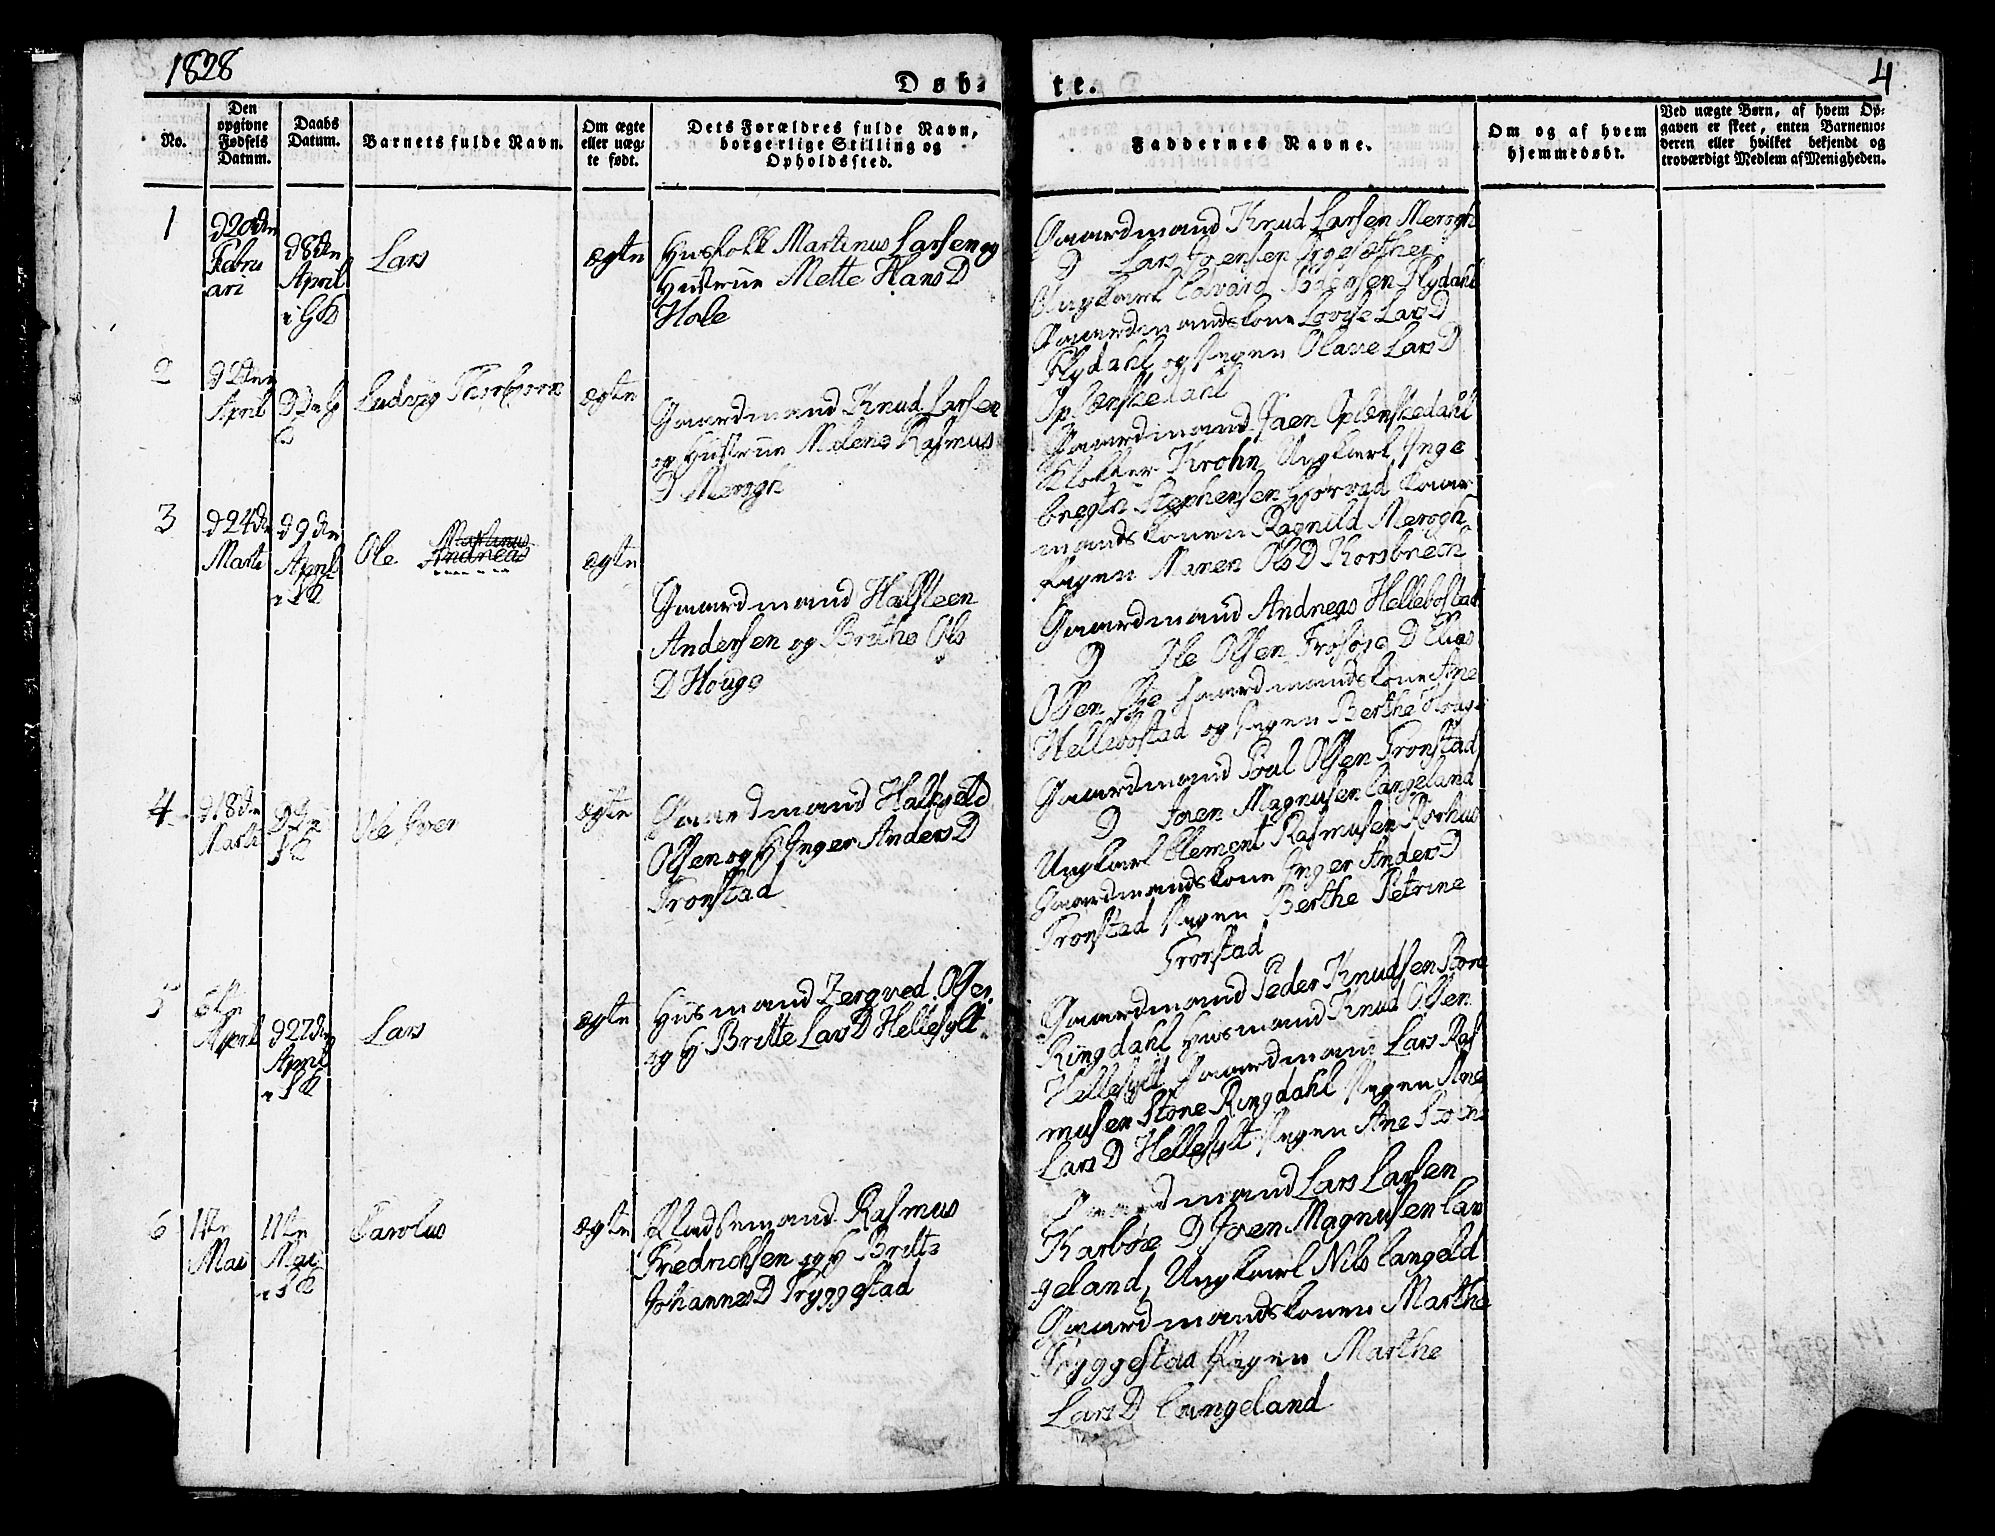 1828
4
Døb-
te.
No.
Den
opgivne
Fødsels
Datum.
Daabs
Datum.
Barnets fulde Navn.
Om ægte
eller uæg-
te født.
Dets Forældres fulde Navn,
borgerlige Stilling og
Opholdssted.
Faddernes Navne.
Om og af hvem
hjemmedøbt.
Ved uægte Børn, af hvem Op-
gaven er skeet, enten Barnemo-
deren eller hvilket bekjendt og
troværdigt Medlem af Menigheden.
1
d 20de
Febru
ari
d 8de
April
i
Lars
ægte
Husfolk Martinus Larsen og
Hustrue Mette Hans D
Hole
Gaardmand Knud Larsen Merogh
D Lars Joensen
Ungkarl Edvard Pedersen Flydahl
Gaardmandskone Lovise Lars D
Flydahl og Pigen Olave Lars D
2
d 2den
April
Ludvig Thorbjorn
ægte
Gaardmand Knud Larsen
og Hustrue Malene Rasmus
D Merogh
Gaardmand Joen Oplenskedahl
Klokker Krohn Ungkarl Inge
bregth Stephensen Gjørvad Gaar
mandskonen Ragnild Merogh
Pigen Maren Ols D Korsbrech
3
d 24de
Marti
d 9de
April
Ole Martinus
Andreas
ægte
Gaardmand Halsteen
Andersen og Brithe Ols
D Houge
Gaardmand Andreas Hellebostad
D Ole Olsen D Elias
Olsen Gaardmandskone Ane
Hellebostad og Pigen Berthe Houge
4
d 18de
Marti
Ole Iver
ægte
Gaardmand Halkgeld
Olsen og H Inger Anders D
Tronstad
Gaardmand Poul Olsen Tronstad
D Joen Magnusen Langeland
Ungkarl Clement Rasmusen Korhus
Gaardmandskone Inger Anders D
Tronstad Pigen Berthe Petrine
Tronstad
5
April
d 22de
April
Lars
ægte
Husmand Zergved Olsen
og H Britte Lars D Hellesylt
Gaardmand Peder Knudsen Store
Ringdahl Husmand Knud Olsen
Hellesylt Gaardmand Lars Ras
musen Store Ringdahl Pigen Ane
Lars D Hellesylt Pigen Ane
6
1ste
Mai
11te
Mai
Carolus
ægte
Pladsemand Rasmus
Fredrichsen og H Britte
Johannes D Tryggestad
Gaardmand Lars Larsen
Karbøe D Joen Magnusen Lan
geland, Ungkarl Nils Langeld
Gaardmandskonen Marthe
Tryggestad Pigen Marthe
Lars D Langeland